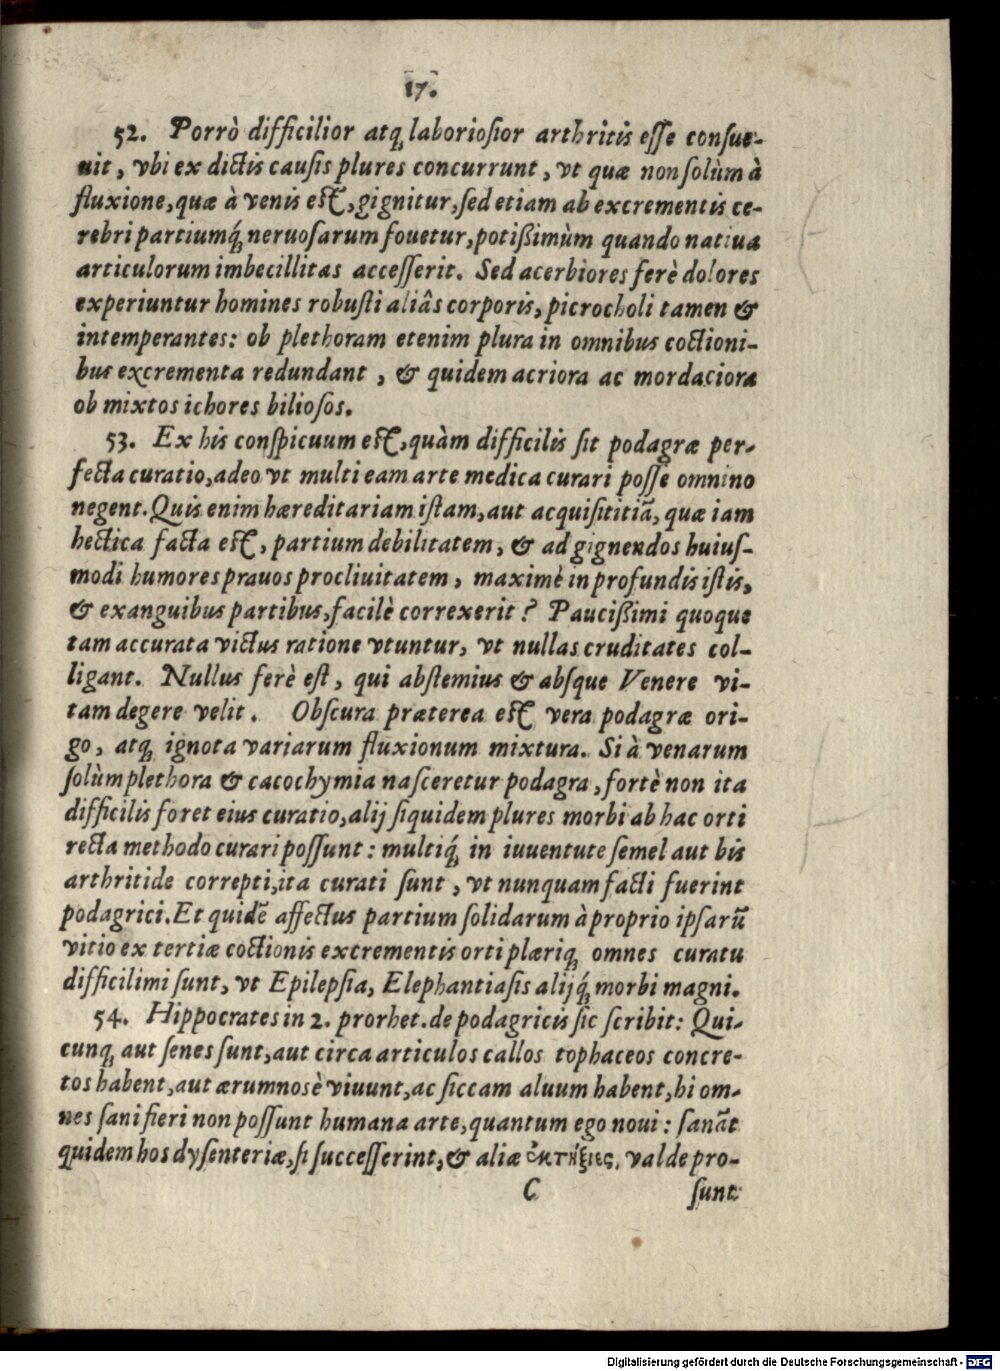 17.
52. Porrò difficilior atq; laboriosior arthritis esse consue-
uit, vbi ex dictis causis plures concurrunt, vt quæ non solùm à
fluxione, quæ à venis est, gignitur, sed etiam ab excrementis ce-
rebri partiumq́; neruosarum fouetur, potißimùm quando natiua
articulorum imbecillitas accesserit. Sed acerbiores ferè dolores
experiuntur homines robusti aliâs corporis, picrocholi tamen &
intemperantes: ob plethoram etenim plura in omnibus coctioni-
bus excrementa redundant, & quidem acriora ac mordaciora
ob mixtos ichores biliosos.
53. Ex his conspicuum est, quàm difficilis sit podagræ per-
fecta curatio, adeo vt multi eam arte medica curari posse omnino
negent. Quis enim hæreditariam istam, aut acquisititiā, quæ iam
hectica facta est, partium debilitatem, & ad gignendos huius-
modi humores prauos procliuitatem, maximè in profundis istis,
& exanguibus partibus, facilè correxerit? Paucißimi quoque
tam accurata victus ratione vtuntur, vt nullas cruditates col-
ligant. Nullus ferè est, qui abstemius & absque Venere vi-
tam degere velit. Obscura præterea est vera podagræ ori-
go, atq; ignota variarum fluxionum mixtura. Si à venarum
solùm plethora & cacochymia nasceretur podagra, fortè non ita
difficilis foret eius curatio, alij siquidem plures morbi ab hac orti
recta methodo curari possunt: multiq́; in iuuentute semel aut bis
arthritide correpti, ita curati sunt, vt nunquam facti fuerint
podagrici. Et quidē affectus partium solidarum à proprio ipsarū
vitio ex tertiæ coctionis excrementis orti plæriq; omnes curatu
difficilimi sunt, vt Epilepsia, Elephantiasis alijq́; morbi magni.
54. Hippocrates in 2. prorhet. de podagricis sic scribit: Qui-
cunq; aut senes sunt, aut circa articulos callos tophaceos concre-
tos habent, aut ærumnosè viuunt, ac siccam aluum habent, hi om-
nes sani fieri non possunt humana arte, quantum ego noui: sanāt
quidem hos dysenteriæ, si successerint, & aliæ ἐκτήξιες, valde pro-
C sunt
Digitalisierung gefördert durch die Deutsche Forschungsgemeinschaft - DFG